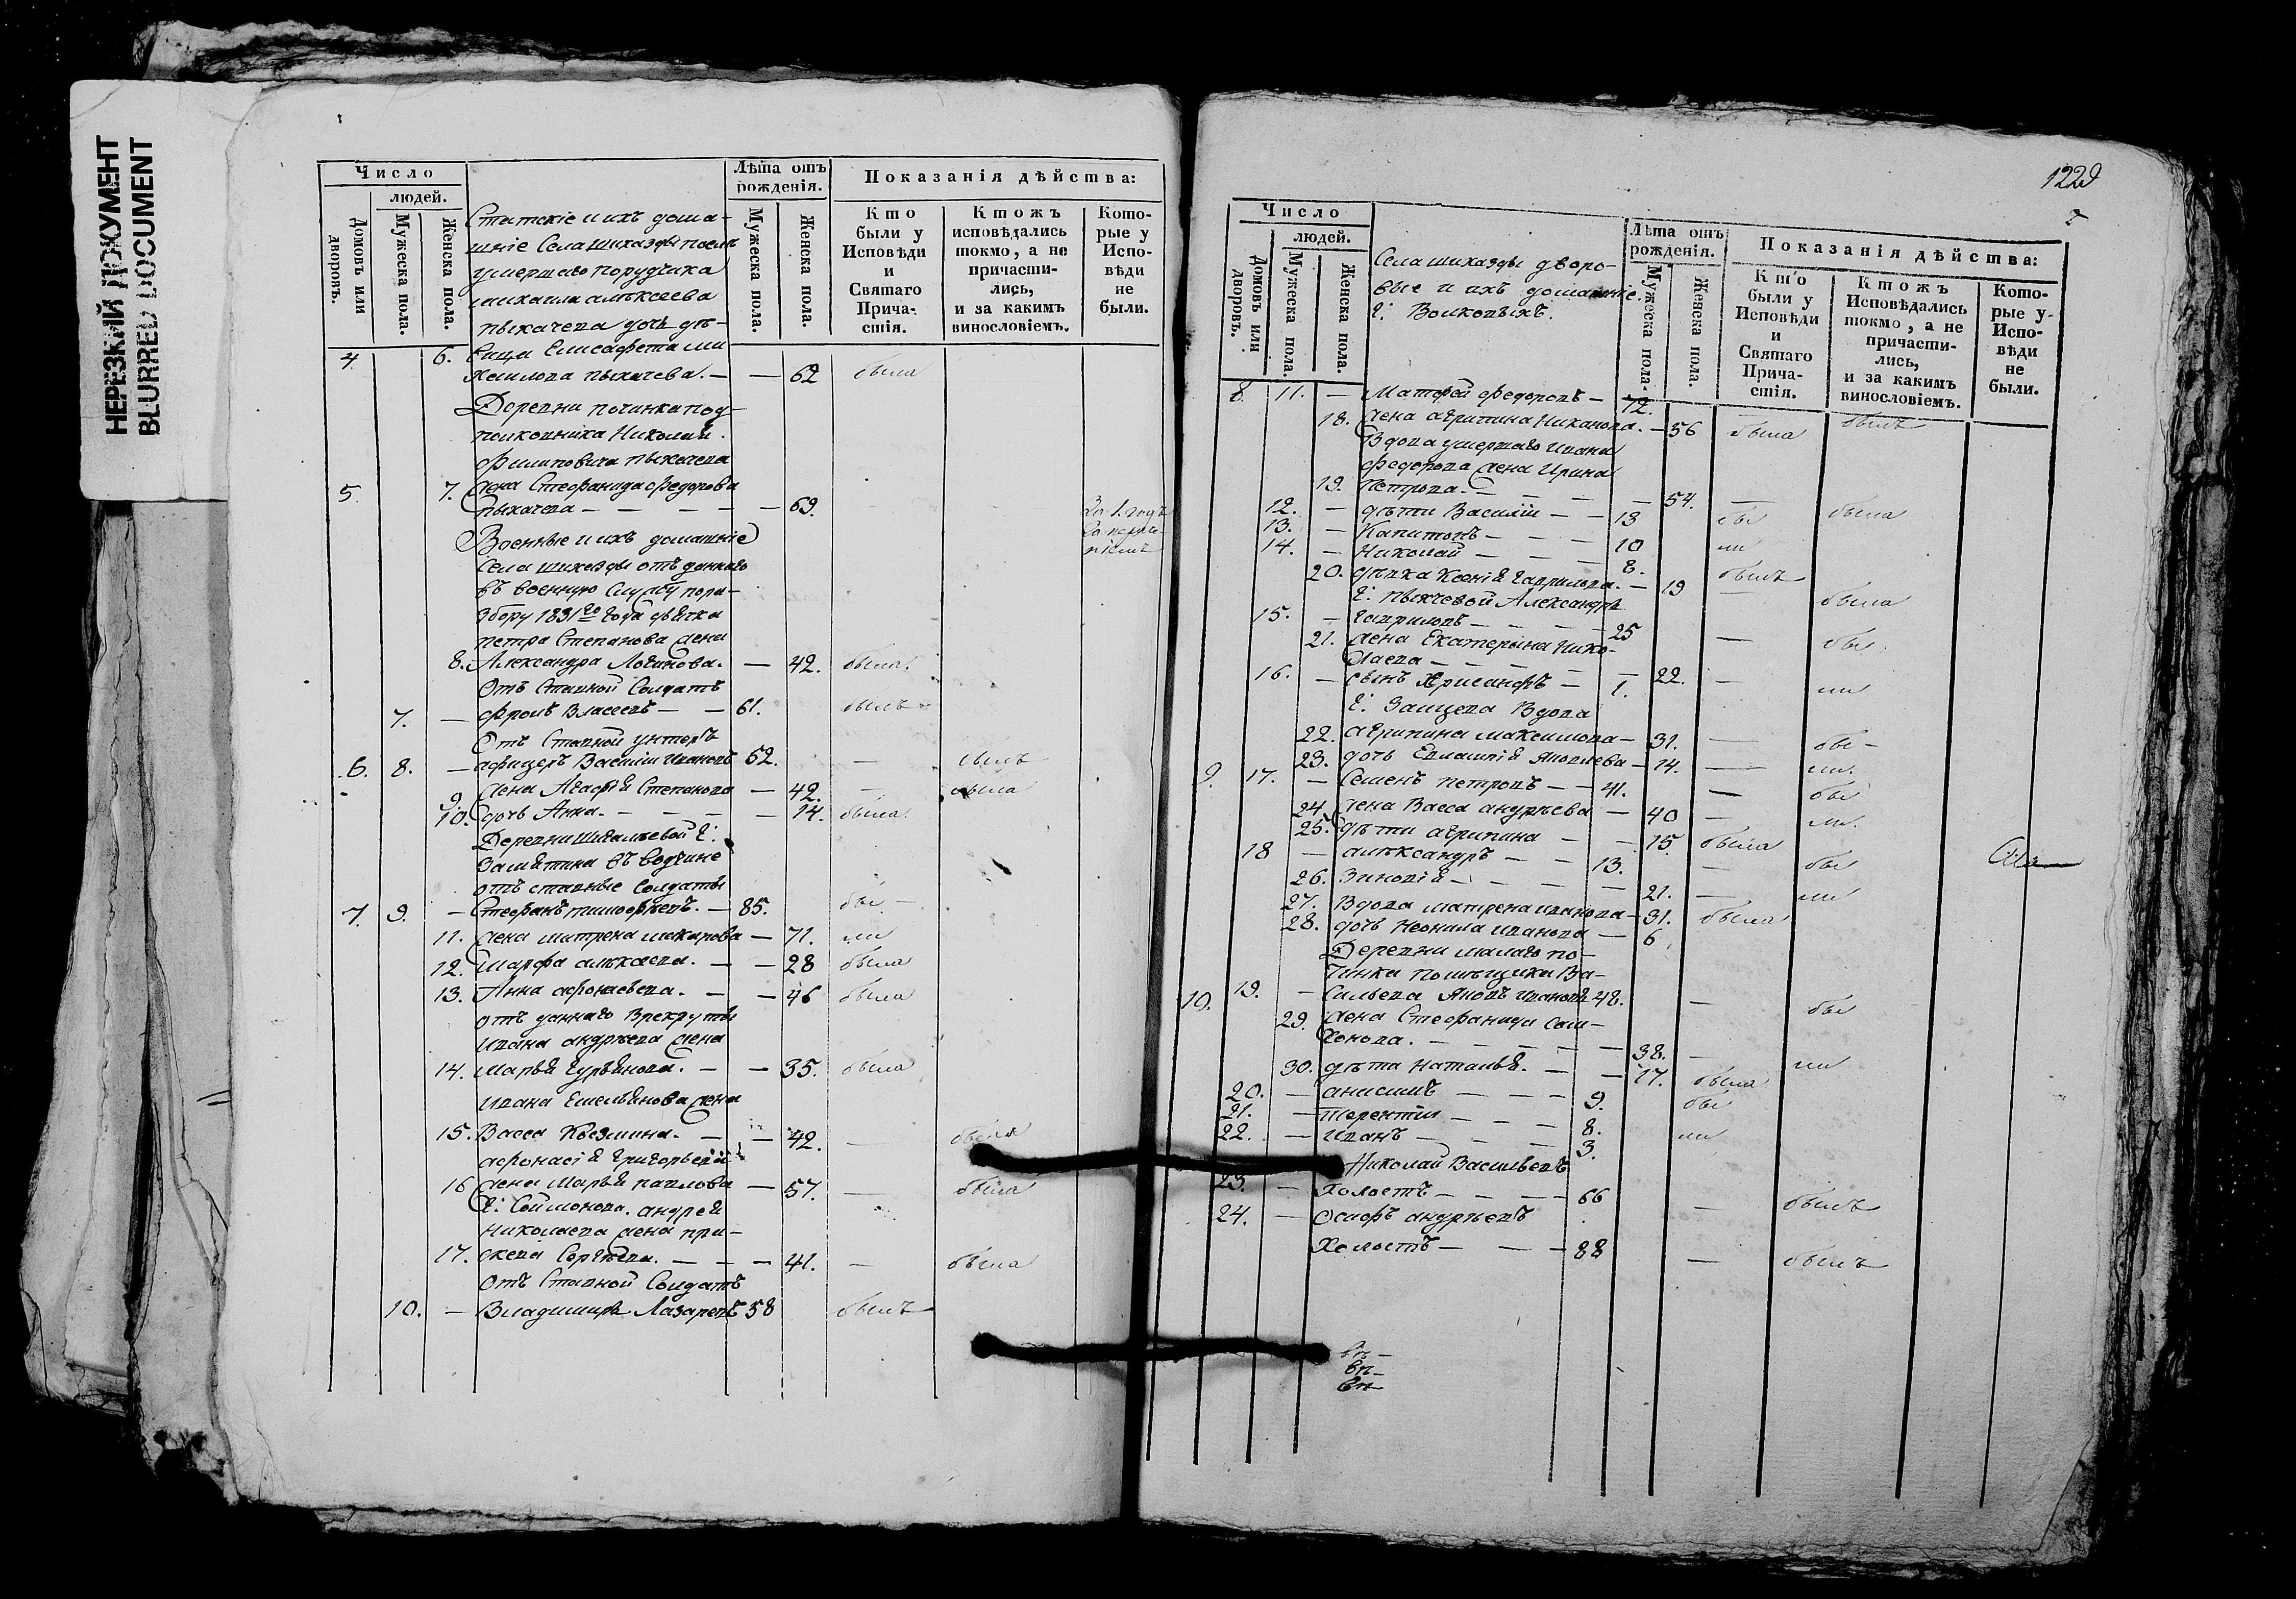 НЕРЕЗКИЙ ДОКУМЕНТ
BLURRED DOCUMENT
Число
людей.
Домовъ или дворовъ.
Мужеска пола.
Женска пола.
Лѣта отъ рожденія.
Мужеска пола.
Женска пола.
Показанія дѣйства:
Кто были у Исповѣди и Святаго Прича-стія.
Ктожъ исповѣдались токмо, а не причасти-лись, и за какимъ винословіемъ.
Кото-рые у Испо-вѣди не были.
Статскіе и ихъ дома-
шніе Села Шихазды послѣ
умершаго порутчика
михаила алѣксеева
пыхачева дочь дѣ-
4. 6. вица Елисафета ми
хаилова пыхачева. — — 62 была
Деревни починка под-
полковника Николай
филиповича пыхачева
5. 7. жена Стефанида федорова
пыхачева — — — — 69.
Военные и ихъ домашніе
Села шихазды отъ даннаго
въ военную Службу по
збору 1831го года
петра Степанова жена
8. Александра Логинова. — 42. была.
отъ Ставной Солдатъ
7. — фролъ Власевъ — — 61. былъ
Отъ Ставной унтеръ
6. 8. — афицеръ Василіи Ивановъ 52. — былъ
9. жена Агафія Степанова — 42. — была
10. дочь Анна. — — — — 14. была.
Деревни Г:
Замятина въ водчине
отъ ставные Солдаты
7. 9. — Стефанъ тимофѣевъ. — 85. бы —
11. жена матрена макарова — 71. ли
12. марфа алѣксеева. — — 28 была
13. Анна афонасьева. — — 46 была
отъ даннаго Врекруты
ивана андрѣева жена
14. Марья Гурьянова. — — 35. была
ивана Емельянова жена
15. Васса Козмина. — — 42. — была
афонасія григорьева
16 жена Марья павлова — 57. — была
Г: Соймонова. андрея
николаева жена при-
17. скева Сергѣева. — — — 41. — была
отъ Ставной Солдатъ
10. — Владимиръ Лазаревъ 58 былъ
1229
Число
людей.
Домовъ или дворовъ.
Мужеска пола.
Женска пола.
Лѣта отъ рожденія.
Мужеска пола.
Женска пола.
Показанія дѣйства:
Кто были у Исповѣди и Святаго Прича-стія.
Ктожъ Исповѣдались токмо, а не причасти-лись, и за какимъ винословіемъ.
Кото-рые у Испо-вѣди не были.
Села шихазды дворо-
вые и ихъ домашніе.
Г: Волковыхъ.
8. 11. — Матфей федоровъ — 72. былъ
18. жена агрипина Никанова. — 56 была
Вдова умершаго ивана
федорова жена Ирина
19. петрова. — — — — 54. — была
12. — дѣти Василіи — — 13 бы
13. — Капитонъ — — — 10 ли
14. — Николай — — — 8. былъ
20. дѣвка Ксенія гаврилова. — 19 — была
Г: пыхчевой Александръ
15. — гавриловъ — — — — 25 — бы
21. жена Екатерина Нико-
лаева — — — — — 22. — ли
16. — сынъ Хрисанфъ — 1.
Г: Заицева Вдова
22. агрипина максимова — 31. — бы —
23. дочь Евлампія Яковлева — 14. — ли.
9. 17. — Семенъ петровъ — — 41. — бы
24. жена Васса андрѣева — 40 — ли.
25. дѣти агрипина — — 15. была
18 — алѣксандръ — — 13. — бы
26. Зиновія — — — — 21. — ли
27. Вдова матрена иванова — 31. была
28. дочь Неонила иванова — 6
Деревни малаго по-
чинка помѣщика Ва-
10. 19. — сильева Яковъ ивановъ 48. — бы
29. жена Стефанида Сам-
сонова. — — — — — 38. — ли
30. дѣти наталья. — — 17. была
20. — анисимъ — — — 9. бы
21. — терентіи — — — 8. ли
22. — иванъ — — — — 3.
Николай Васильевъ
23. — Холостъ — — — — 66 — былъ
24. — Осифъ андрѣевъ
Холостъ — — — 88 — былъ